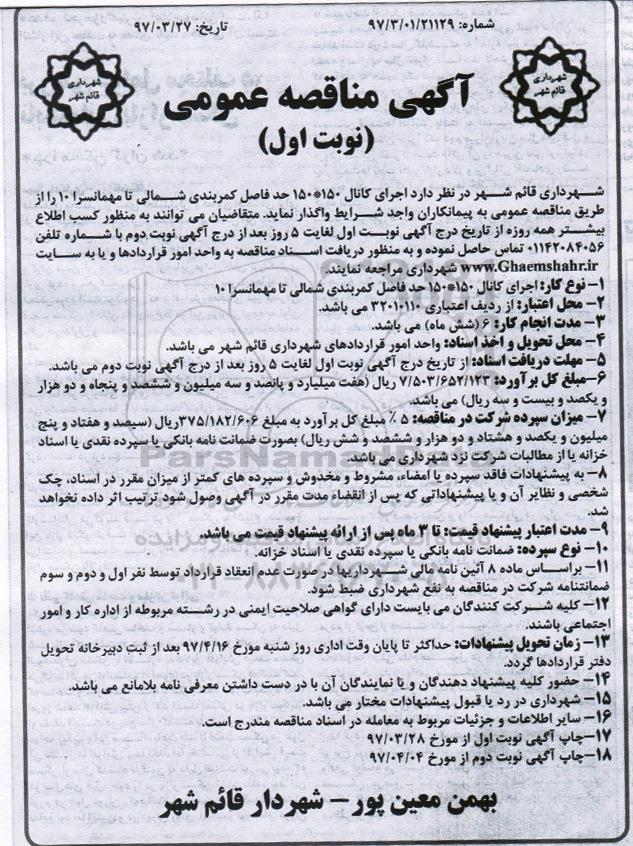 شماره: ۹۷/۳/۰۱/۲۱۱۲۹
تاریخ: ۹۷/۰۳/۲۷
شهرداری قائم شهر
شهرداری قائم شهر
آگهی مناقصه عمومی
(نوبت اول)
شهرداری قائم شهر در نظر دارد اجرای کانال ۱۵۰*۱۵۰ حد فاصل کمربندی شمالی تا مهمانسرا ۱۰ را از
طریق مناقصه عمومی به پیمانکاران واجد شرایط واگذار نماید. متقاضیان می توانند به منظور کسب اطلاع
بیشتر همه روزه از تاریخ درج آگهی نوبت اول لغایت ۵ روز بعد از درج آگهی نوبت دوم با شماره تلفن
۰۱۱۴۲۰۸۴۰۵۶ تماس حاصل نموده و به منظور دریافت اسناد مناقصه به واحد امور قراردادها و یا به سایت
www.Ghaemshahr.ir شهرداری مراجعه نمایند.
۱–نوع کار: اجرای کانال ۱۵۰*۱۵۰ حد فاصل کمربندی شمالی تا مهمانسرا ۱۰
۲– محل اعتبار: از ردیف اعتباری ۳۲۰۱۰۱۱۰ می باشد.
۳– مدت انجام کار: ۶ (شش ماه) می باشد.
۴– محل تحویل و اخذ اسناد: واحد امور قراردادهای شهرداری قائم شهر می باشد.
۵– مهلت دریافت اسناد: از تاریخ درج آگهی نوبت اول لغایت ۵ روز بعد از درج آگهی نوبت دوم می باشد.
۶–مبلغ کل برآورد: ۷/۵۰۳/۶۵۲/۱۲۳ ریال (هفت میلیارد و پانصد و سه میلیون و ششصد و پنجاه و دو هزار
و یکصد و بیست و سه ریال) می باشد.
۷– میزان سپرده شرکت در مناقصه: ۵ ٪ مبلغ کل برآورد به مبلغ ۳۷۵/۱۸۲/۶۰۶ریال (سیصد و هفتاد و پنج
میلیون و یکصد و هشتاد و دو هزار و ششصد و شش ریال) بصورت ضمانت نامه بانکی یا سپرده نقدی یا اسناد
خزانه یا از مطالبات شرکت نزد شهرداری می باشد.
۸– به پیشنهادات فاقد سپرده یا امضاء، مشروط و مخدوش و سپرده های کمتر از میزان مقرر در اسناد، چک
شخصی و نظایر آن و یا پیشنهاداتی که پس از انقضاء مدت مقرر در آگهی وصول شود ترتیب اثر داده نخواهد
شد.
۹– مدت اعتبار پیشنهاد قیمت: تا ۳ ماه پس از ارائه پیشنهاد قیمت می باشد.
۱۰– نوع سپرده: ضمانت نامه بانکی یا سپرده نقدی یا اسناد خزانه.
۱۱– براساس ماده ۸ آئین نامه مالی شهرداریها در صورت عدم انعقاد قرارداد توسط نفر اول و دوم و سوم
ضمانتنامه شرکت در مناقصه به نفع شهرداری ضبط شود.
۱۲– کلیه شرکت کنندگان می بایست دارای گواهی صلاحیت ایمنی در رشته مربوطه از اداره کار و امور
اجتماعی باشند.
۱۳– زمان تحویل پیشنهادات: حداکثر تا پایان وقت اداری روز شنبه مورخ ۹۷/۴/۱۶ بعد از ثبت دبیرخانه تحویل
دفتر قراردادها گردد.
۱۴– حضور کلیه پیشنهاد دهندگان و یا نمایندگان آن با در دست داشتن معرفی نامه بلامانع می باشد.
۱۵– شهرداری در رد یا قبول پیشنهادات مختار می باشد.
۱۶– سایر اطلاعات و جزئیات مربوط به معامله در اسناد مناقصه مندرج است.
۱۷–چاپ آگهی نوبت اول از مورخ ۹۷/۰۳/۲۸
۱۸–چاپ آگهی نوبت دوم از مورخ ۹۷/۰۴/۰۴
بهمن معین پور – شهردار قائم شهر